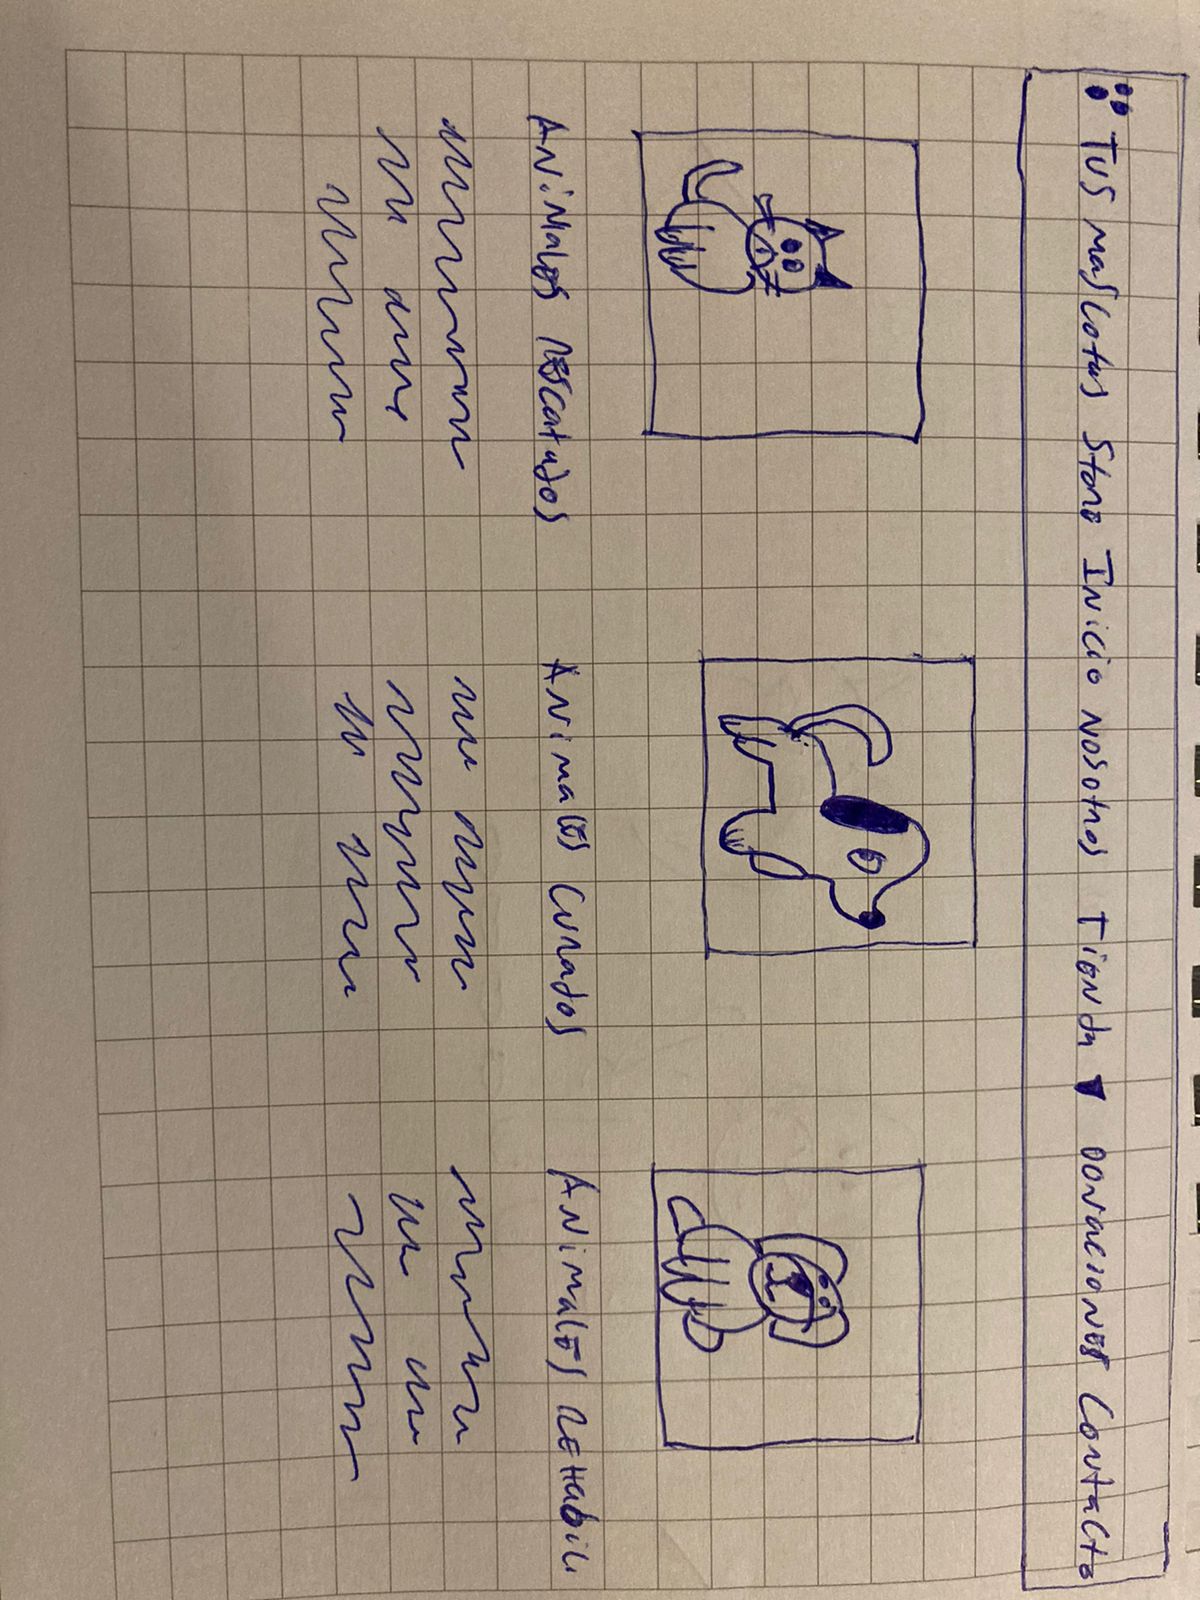 Tus mascotas Store Inicio Nosotros Tienda ▼ Donaciones Contacto
Animales rescatados
Animales Curados
Animales rehabili